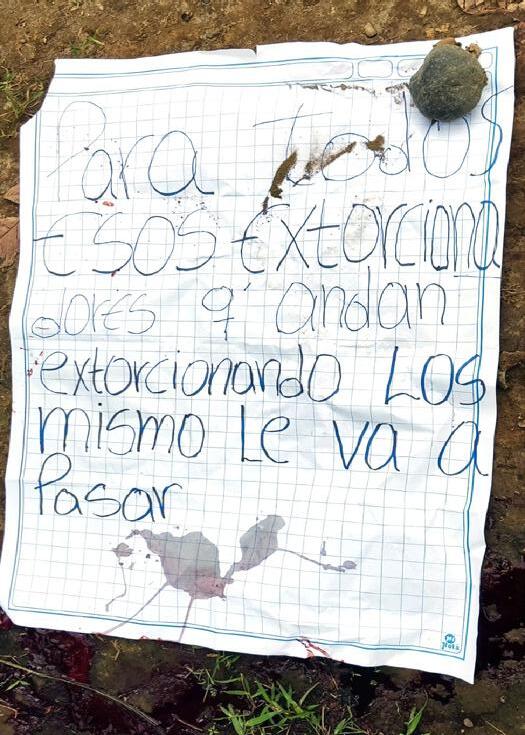 Para Todos
ESOS Extorciona
dores q' andan
extorcionando Los
mismo Le va a
Pasar
My
Note